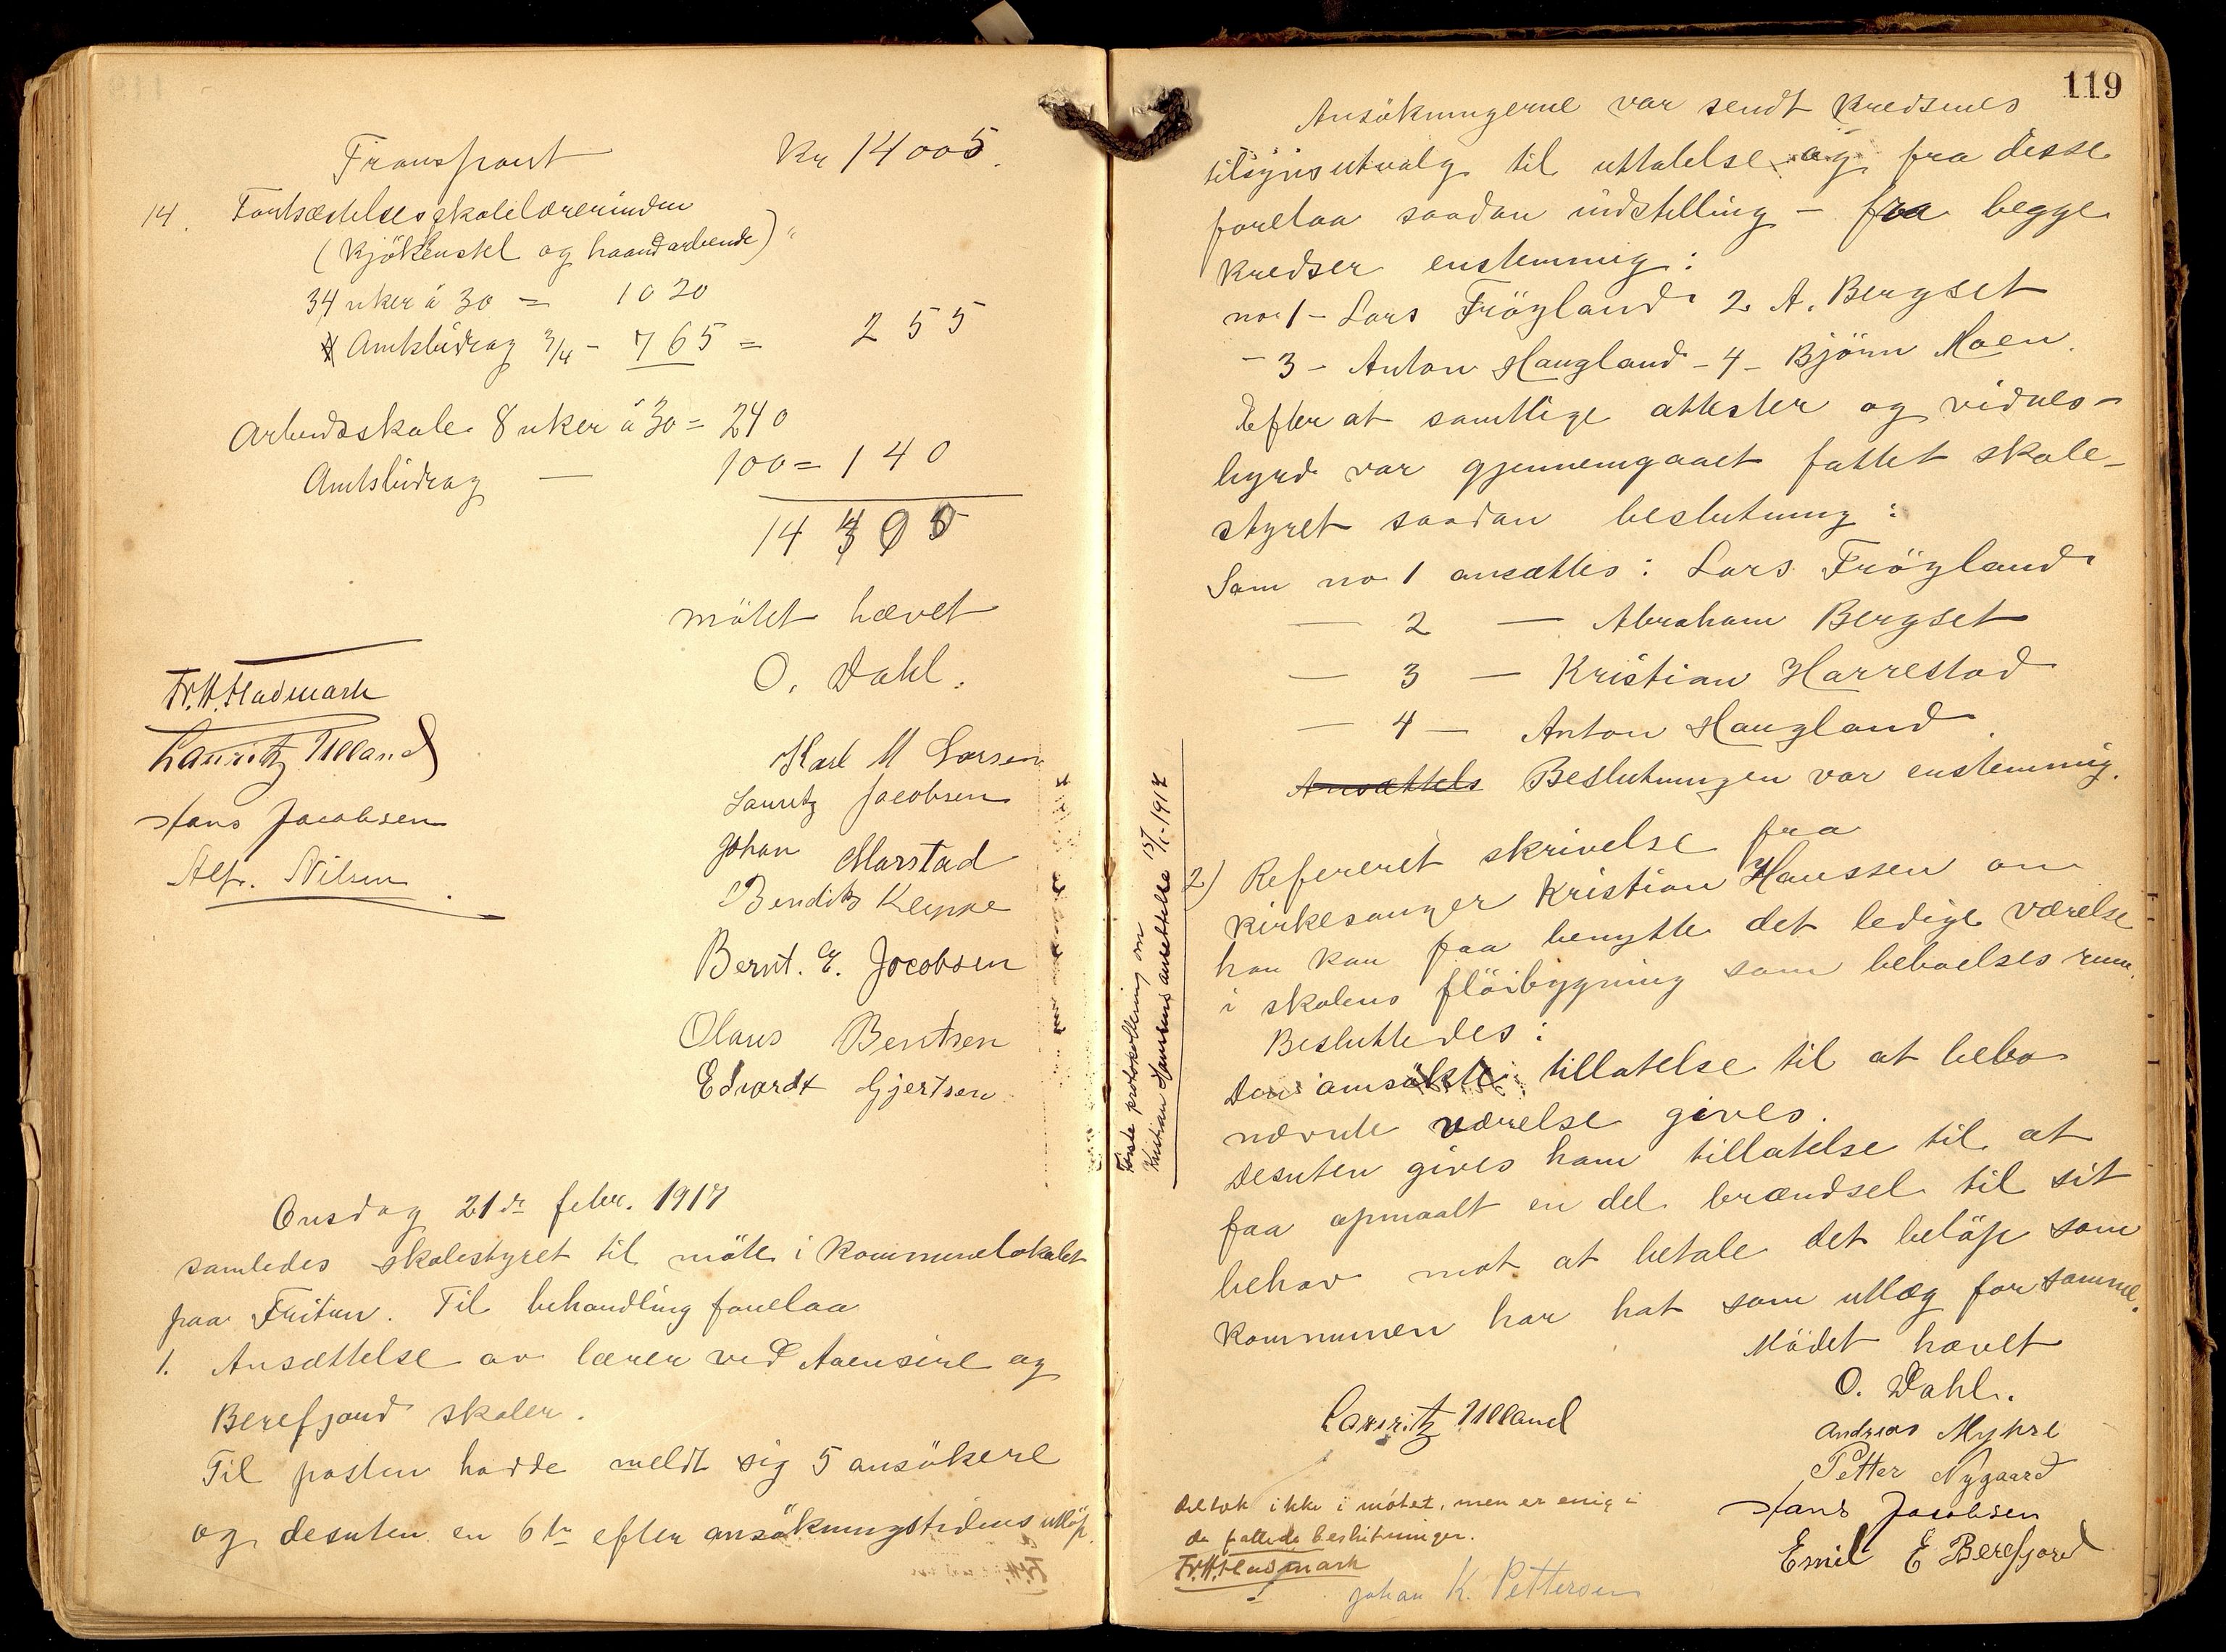 Transport Kr 14005.
14. Fortsættelsesskolelærerinden
(Kjökkenstel og haandarbeide)
34 uker á 30 = 1020
Amtsbidrag 3/4 - 765 = 255
Arbeidsskole 8 uker á 30 = 240
Amtsbidrag — 100 = 140
14
mötet hævet
O. Dahl.
Fr. H. Hadmark
Lauritz Ulland
Hans Jacobsen
Alfr. Nilsen
Karl M Larsen
Lauritz Jacobsen
Johan Marstad
Bendik Kleppe
Bernt. E. Jacobsen
Olaus Bentsen
Edvardt Gjertsen
Onsdag 21de febr. 1917
samledes skolestyret til möte i kommunelokalet
paa Fritun. Til behandling forelaa
1. Ansættelse av lærer ved Aaensire og
Berefjord skoler.
Til posten hadde meldt sig 5 ansökere
og desuten en 6te efter ansökningstidens utlöp.
119
Ansökningerne var sendt kredsenes
tilsynsutvalg til uttalelse og fra disse
forelaa saadan indstilling - fra begge
kredser enstemmig:
no 1 - Lars Frögland 2 A. Bergset
- 3 - Anton Haugland - 4 - Björn Moen.
Efter at samtlige attester og vidnes-
byrd var gjennemgaaet fattet skole-
styret saadan beslutning:
Som no 1 ansættes: Lars Frögland
— 2 — Abraham Bergset
— 3 — Kristian Harrestad
— 4 — Anton Haugland.
Ansættels Beslutningen var enstemmig.
Siste protokollering om
Kristian Hanssens ansettelse 15/1-1917
2) Refereret skrivelse fra
kirkesanger Kristian Hanssen om
han kan faa benytte det ledige værelse
i skolens flöibygning som beboelsesrum.
Besluttedes:
Den ansökte tillatelse til at bebo
nævnte værelse gives.
Desuten gives ham tillatelse til at
faa opmaalt en del brændsel til sit
behov mot at betale det belöp som
kommunen har hat som utlæg for samme.
Mödet hævet
O. Dahl.
Lauritz Ulland
Andreas Myhre
Petter Nygaard
Hans Jacobsen
Emil E Berefjord
Deltok ikke i mötet, men er enig i
de fattede beslutninger.
Fr. H. Hadmark
Johan K. Pettersen